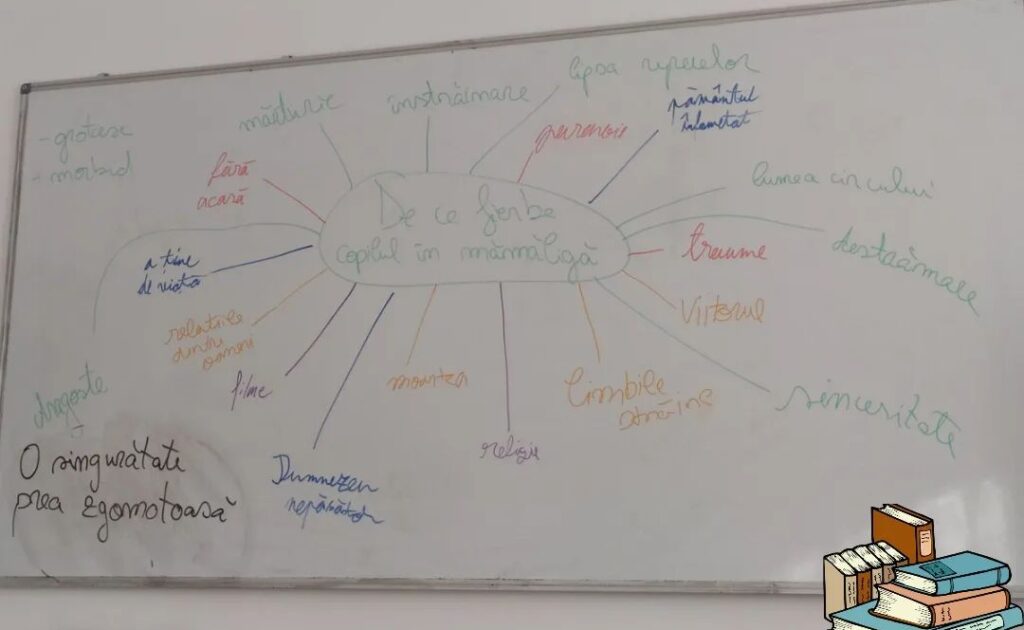 - grotesc
- morbid
mărturie
înstrăinare
lipsa reperelor
paranoia
pământul
înfometat
fără
acară
De ce fierbe
copilul în mămăligă
lumea circului
destrămare
traume
a ține
de viața
relațiile
dintre
oameni
viitorul
filme
moartea
limbile
străine
sinceritate
dragoste
religie
O singurătate
prea zgomotoasă
Dumnezeu
nepăsător